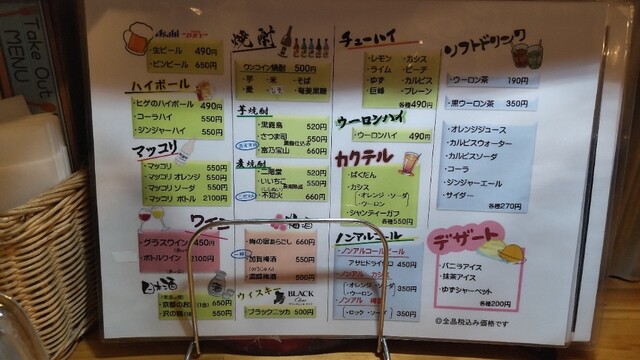 Take Out
MENU
Asahi
・生ビール 490円
・ビンビール 650円
ハイボール
・ヒゲのハイボール 490円
・コーラハイ 550円
・ジンジャーハイ 550円
マッコリ
・マッコリ 550円
・マッコリ オレンジ 550円
・マッコリ ソーダ 550円
・マッコリ ボトル 2100円
ワイン
・グラスワイン 450円
・ボトルワイン 2100円
日本酒
・京都のお酒 650円
・沢の鶴 550円
焼酎
ワンコイン焼酎 500円
・芋 ・米 ・そば
・麦 ・奄美黒糖
芋焼酎
・黒霧島 520円
・さつま司 550円
・富乃宝山 660円
麦焼酎
・二階堂 520円
・いいちこ 550円
・不知火 660円
梅酒
・梅の宿あらごし 660円
・加賀梅酒 550円
550円
ウィスキー
BLACK
・ブラックニッカ 500円
チューハイ
・レモン ・カシス
・ライム ・ピーチ
・ゆず ・カルピス
・巨峰 ・プレーン
各種490円
ウーロンハイ
・ウーロンハイ 490円
カクテル
・ばくだん
・カシス
・オレンジ ・ソーダ
・ウーロン
・シャンティーガフ
各種550円
ノンアルコール
・ノンアルコールビール
アサヒドライゼロ 450円
・ノンアル カシス
・オレンジ ・ソーダ
・ウーロン
350円
・ノンアル 梅酒
・ロック ・ソーダ 350円
ソフトドリンク
・ウーロン茶 190円
・黒ウーロン茶 350円
・オレンジジュース
・カルピスウォーター
・カルピスソーダ
・コーラ
・ジンジャーエール
・サイダー
各種270円
デザート
・バニラアイス
・抹茶アイス
・ゆずシャーベット
各種200円
◎全品税込み価格です